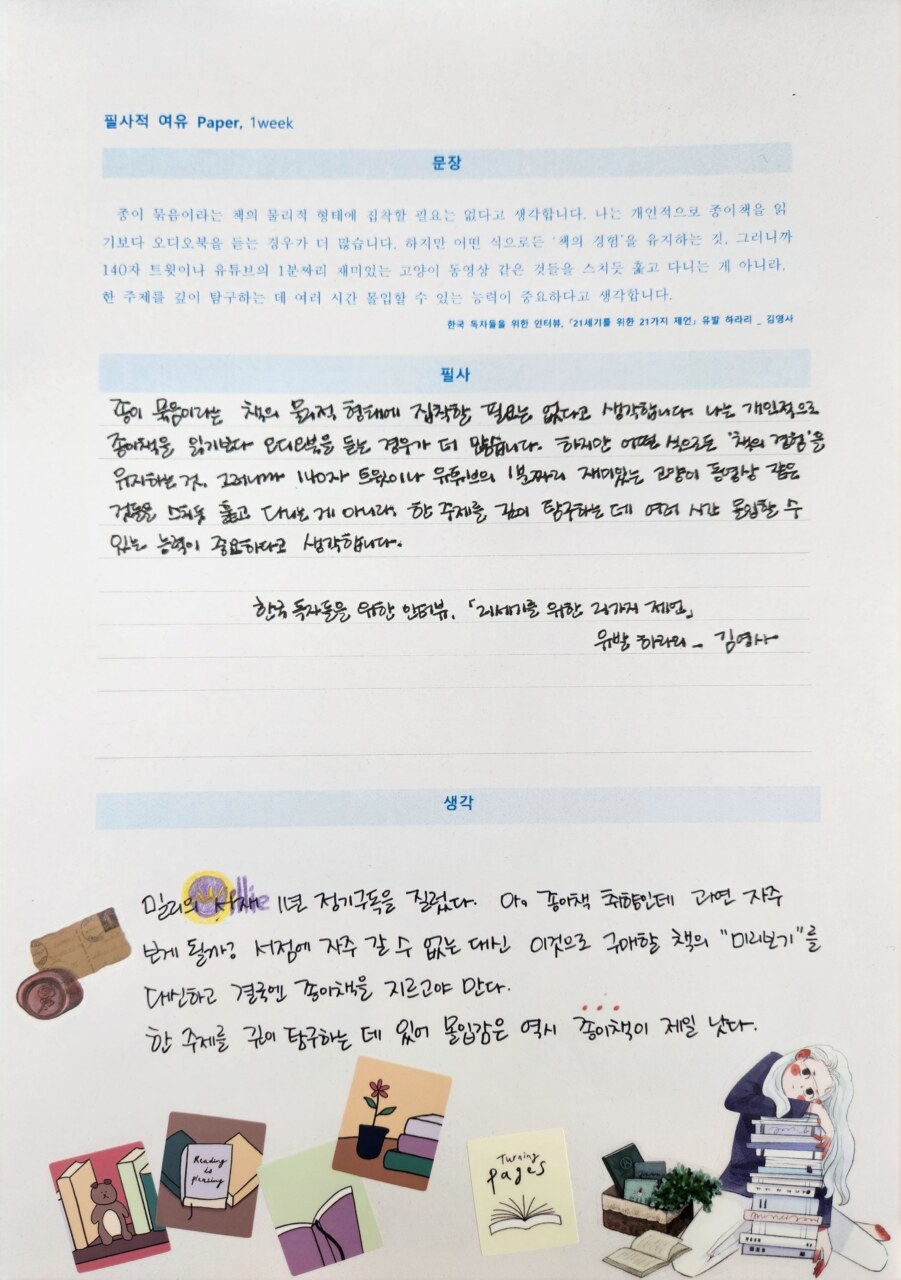 필사적 여유 Paper, 1week
문장
종이 묶음이라는 책의 물리적 형태에 집착할 필요는 없다고 생각합니다. 나는 개인적으로 종이책을 읽
기보다 오디오북을 듣는 경우가 더 많습니다. 하지만 어떤 식으로든 '책의 경험'을 유지하는 것, 그러니까
140자 트윗이나 유튜브의 1분짜리 재미있는 고양이 동영상 같은 것들을 스치듯 훑고 다니는 게 아니라,
한 주제를 깊이 탐구하는 데 여러 시간 몰입할 수 있는 능력이 중요하다고 생각합니다.
한국 독자들을 위한 인터뷰, 「21세기를 위한 21가지 제언」 유발 하라리 _ 김영사
필사
종이 묶음이라는 책의 물리적 형태에 집착할 필요는 없다고 생각합니다. 나는 개인적으로
종이책을 읽기보다 오디오북을 듣는 경우가 더 많습니다. 하지만 어떤 식으로든 '책의 경험'을
유지하는 것, 그러니까 140자 트윗이나 유튜브의 1분짜리 재미있는 고양이 동영상 같은
것들을 스치듯 훑고 다니는 게 아니라, 한 주제를 깊이 탐구하는 데 여러 시간 몰입할 수
있는 능력이 중요하다고 생각합니다.
한국 독자들을 위한 인터뷰, 「21세기를 위한 21가지 제언」
유발 하라리 _ 김영사
생각
밀리의 서재 1년 정기구독을 질렀다. 아, 종이책 취향인데 과연 자주
보게 될까? 서점에 자주 갈 수 없는 대신 이것으로 구매할 책의 "미리보기"를
대신하고 결국엔 종이책을 지르고야 만다.
한 주제를 깊이 탐구하는 데 있어 몰입감은 역시 종이책이 제일 낫다.
Reading
is
pleasing
Turning
pages